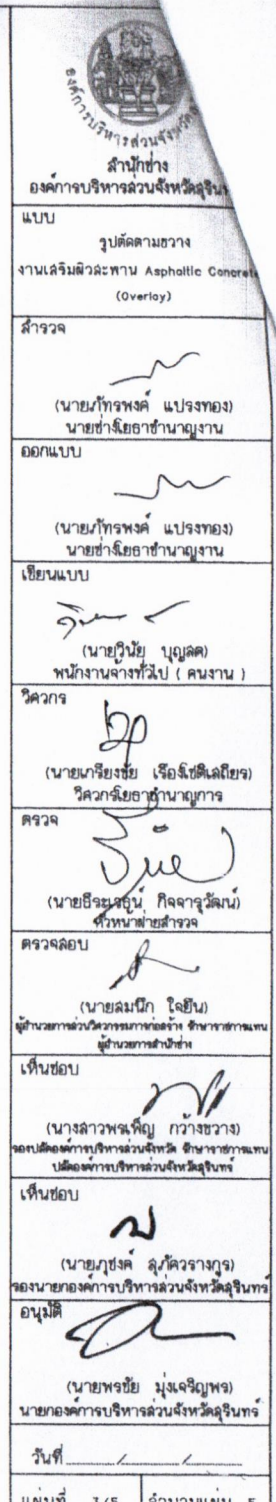 องค์การบริหารส่วนจังหวัด
สำนักช่าง
องค์การบริหารส่วนจังหวัดสุริน
แบบ
รูปตัดตามขวาง
งานเสริมผิวสะพาน Asphaltic Concrete
(Overlay)
สำรวจ
(นายภัทรพงศ์ แปรงทอง)
นายช่างโยธาชำนาญงาน
ออกแบบ
(นายภัทรพงศ์ แปรงทอง)
นายช่างโยธาชำนาญงาน
เขียนแบบ
(นายวินัย บุญลด)
พนักงานจ้างทั่วไป ( คนงาน )
วิศวกร
(นายเกรียงชัย เรืองโชติเสถียร)
วิศวกรโยธาชำนาญการ
ตรวจ
(นายธีระเจริญ กิจจารุวัฒน์)
หัวหน้าฝ่ายสำรวจ
ตรวจสอบ
(นายสมนึก ใจยืน)
ผู้อำนวยการส่วนวิศวกรรมการก่อสร้าง รักษาราชการแทน
ผู้อำนวยการสำนักช่าง
เห็นชอบ
(นางสาวพรเพ็ญ กว้างขวาง)
รองปลัดองค์การบริหารส่วนจังหวัด รักษาราชการแทน
ปลัดองค์การบริหารส่วนจังหวัดสุรินทร์
เห็นชอบ
(นายภุชงค์ สุภัควรางกูร)
รองนายกองค์การบริหารส่วนจังหวัดสุรินทร์
อนุมัติ
(นายพรชัย มุ่งเจริญพร)
นายกองค์การบริหารส่วนจังหวัดสุรินทร์
วันที่ / /
แผ่นที่ 3/5 จำนวนแผ่น 5